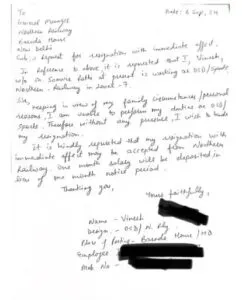 To
General Manager
Northern Railway
Baroda House
New Delhi
Date: 6 Sep, 24
Sub: - Request for resignation with immediate effect.
In reference to above it is requested that I, Vinesh,
w/o Sh Somvir Rathi at present is working as OSD/
Sports Northern Railway in Level-7.
Sir,
Keeping in view of my family circumstances/personal
reasons, I am unable to perform my duties as OSD/
Sports. Therefore without any pressure, I wish to tende
my resignation.
It is kindly requested that my resignation with
immediate effect may be accepted from Northern
Railway. One month salary will be deposited in
lieu of one month notice period.
Thanking you,
Yours faithfully,
Name - Vinesh
Design. - OSD/ N. Rly
Place of Posting - Baroda House / HQ
Employee
Mob No -